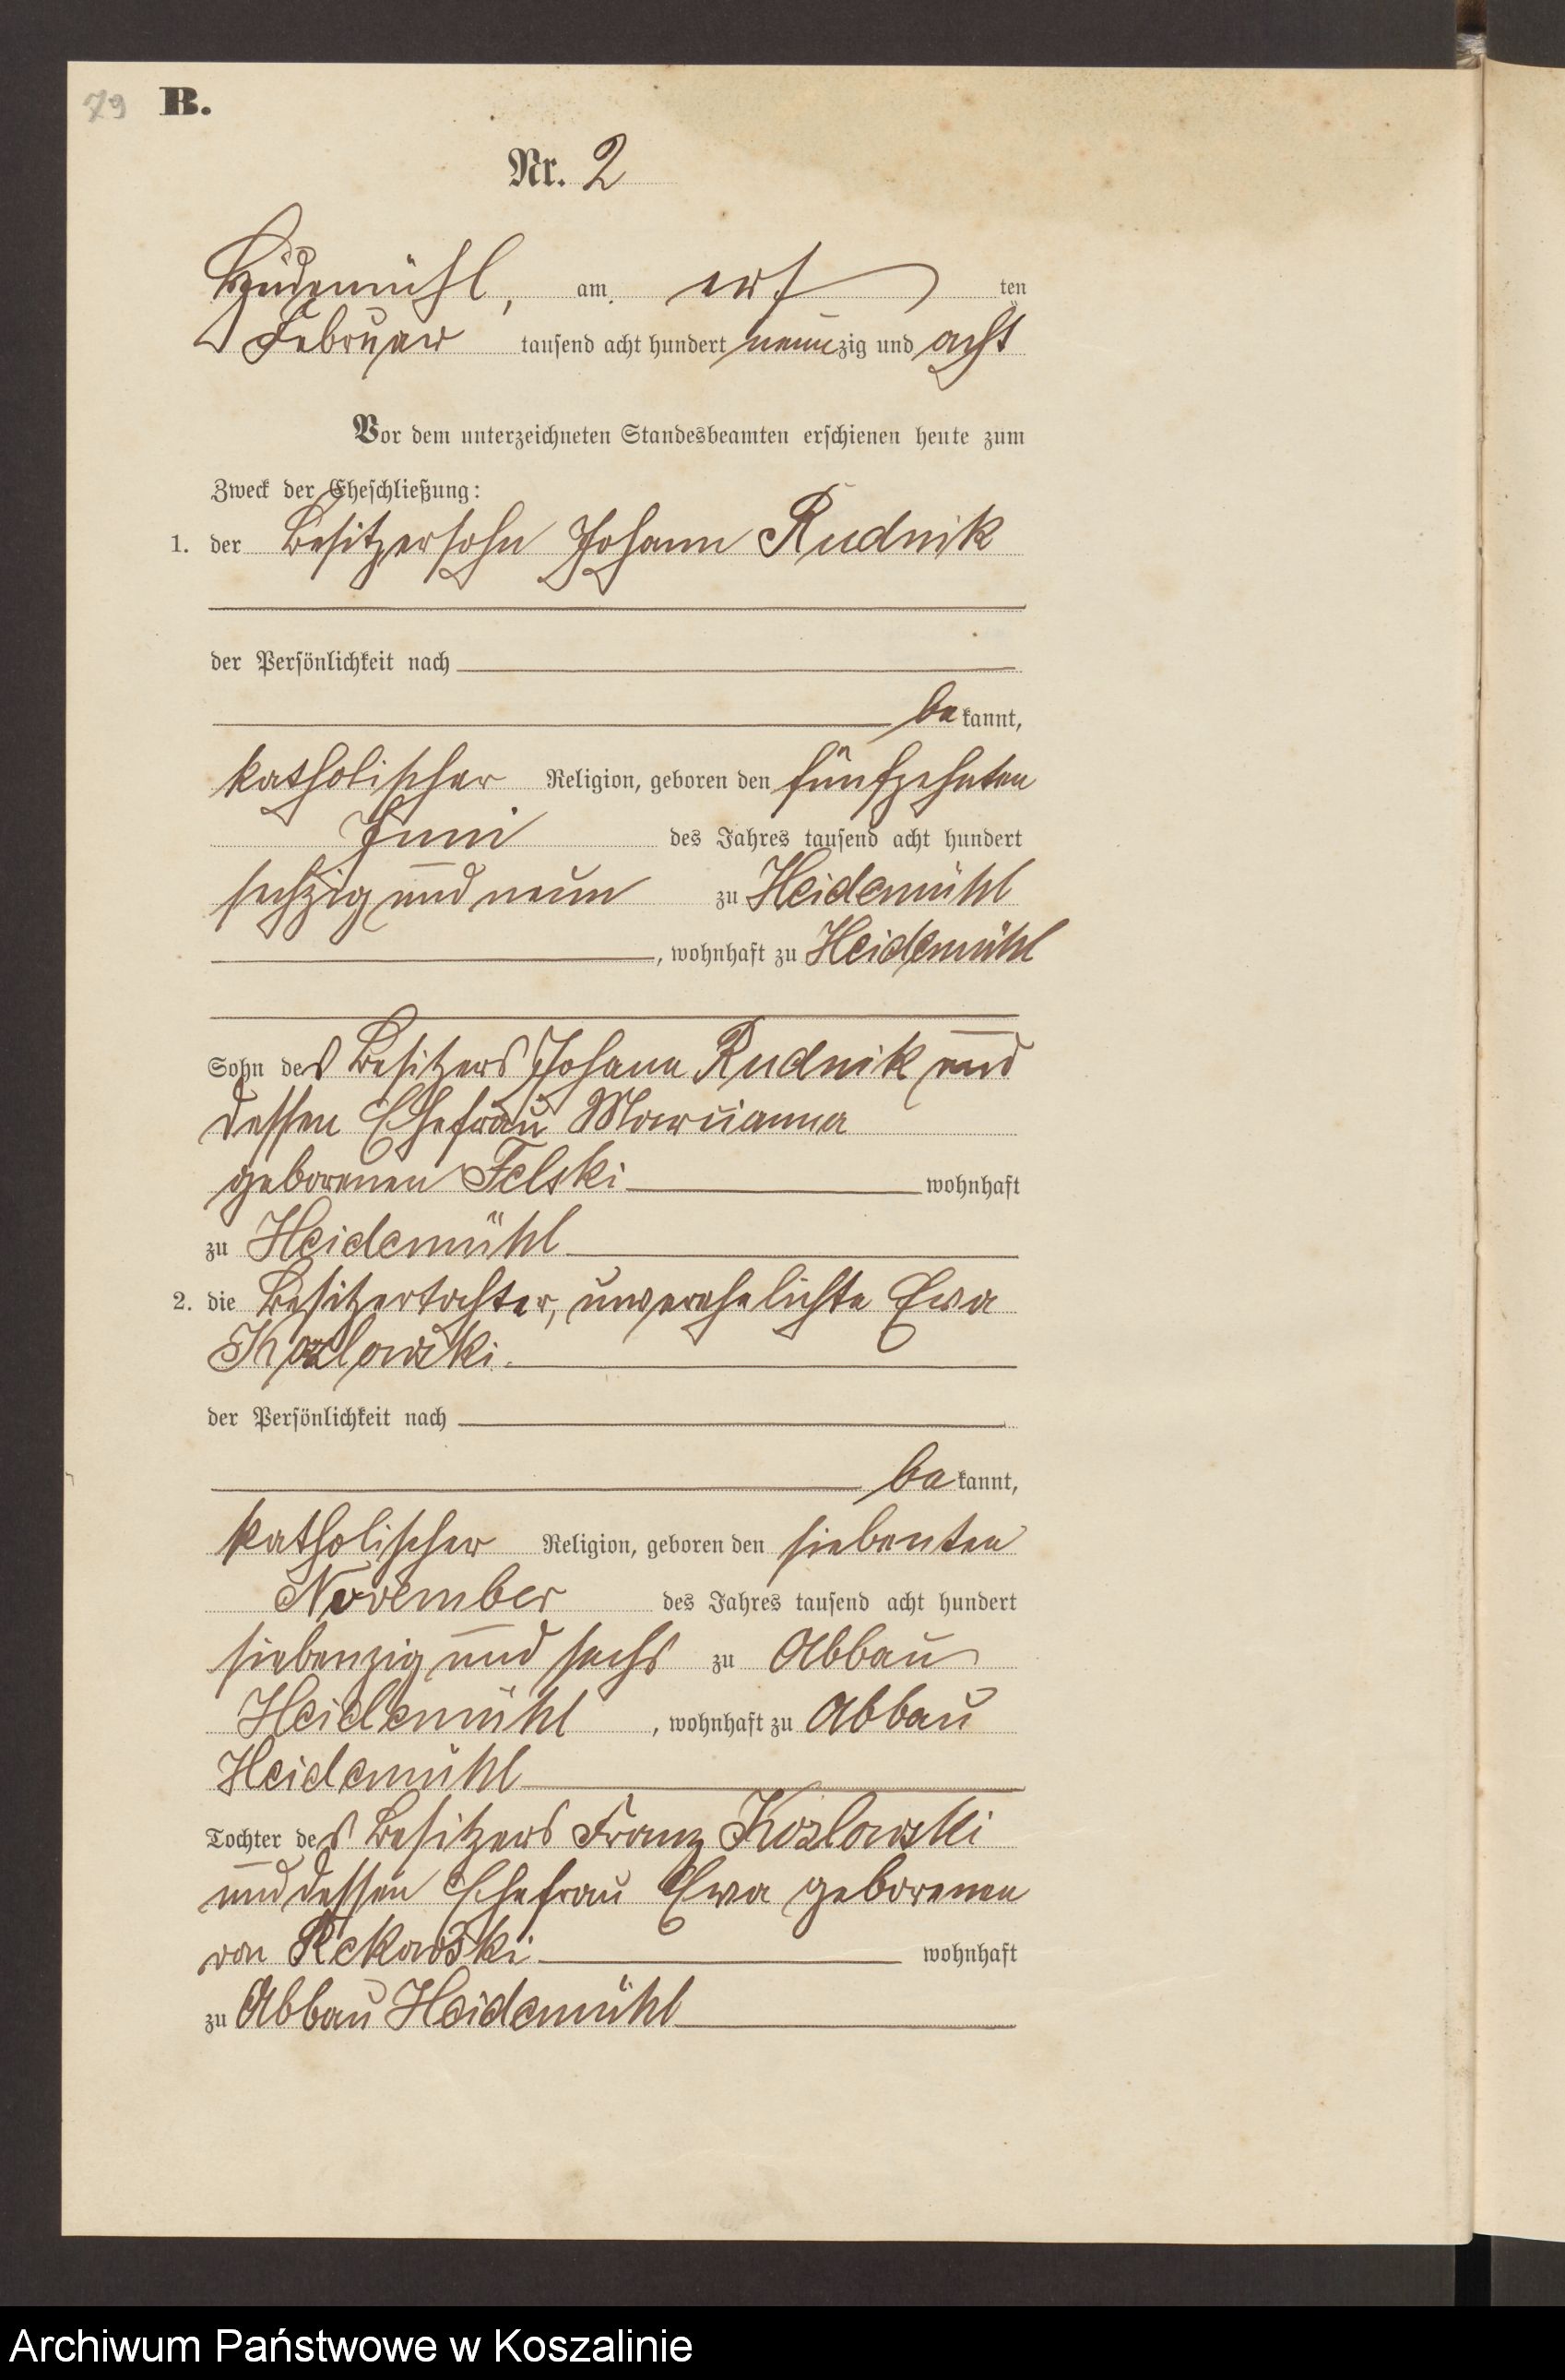 79 B.
Nr. 2
am acht ten
Februar tausend acht hundert neunzig und acht
Vor dem unterzeichneten Standesbeamten erschienen heute zum
Zweck der Eheschließung:
1. der Besitzersohn Johann Rudnik
der Persönlichkeit nach
be kannt,
katholischer Religion, geboren den fünfzehnten
Juni des Jahres tausend acht hundert
sechzig und neun zu Heidemühl
, wohnhaft zu Heidemühl
Sohn des Besitzers Johann Rudnik und
dessen Ehefrau Marianna
geborenen Felski wohnhaft
zu Heidemühl
2. die Besitzertochter, unverehelichte Ewa
Kozlowski
der Persönlichkeit nach
be kannt,
katholischer Religion, geboren den siebenten
November des Jahres tausend acht hundert
siebenzig und sechs zu Abbau
Heidemühl , wohnhaft zu Abbau
Heidemühl
Tochter des Besitzers Franz Kozlowski
und dessen Ehefrau Ewa geborenen
von Rekowski wohnhaft
zu Abbau Heidemühl
Archiwum Państwowe w Koszalinie